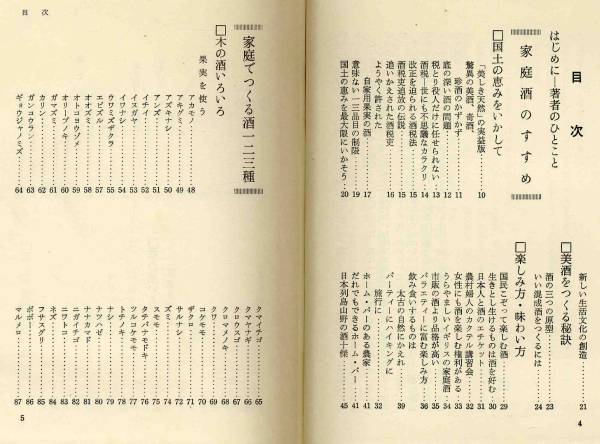 目次
はじめに―著者のひとこと
家庭酒のすすめ
□国土の恵みをいかして
「美しき天然」の実益版……10
驚異の美酒、奇酒、
珍酒のかずかず……11
底の深い酒の問題……12
税とり役人だけに任せられない……13
酒税―世にも不思議なカラクリ……14
改正を迫られる酒税法……15
酒税吏追放の伝説……15
追いかえされた酒税吏……16
ようやく許された
自家用果実の酒……17
意味ない一三品目の制限……19
国土の恵みを最大限にいかそう……20
新しい生活文化の創造……21
□美酒をつくる秘訣
酒の三つの原型……23
いい混成酒をつくるには……24
□楽しみ方・味わい方
国民こぞって楽しむ酒……29
生きとし生けるものは酒を好む……30
日本人と酒のエチケット……31
農村婦人のカクテル講習会……32
女性にも酒を楽しむ権利がある……33
うらやましいイギリスの家庭酒……34
市販の酒より品格が高い……54
バラエティーに富む楽しみ方……35
飲み食いするものは
太古の自然にかえれ……39
パーティーにハイキングに
旅行に……32
ホーム・バーのある農家……41
だれでもできるホーム・バー……41
日本列島山野の酒十傑……45
4
目次
家庭でつくる酒一二三種
□木の酒いろいろ
果実を使う
アカモノ……48
アキグミ……49
アズキナシ……50
アンズ……51
イチイ……52
イスガヤ……53
イワナシ……54
ウワミズザクラ……55
エビズル……57
オオズミ……58
オトコヨウゾメ……59
オリーブノキ……60
ガマズミ……61
カリン……62
ガンコウラン……63
ギョウジャノミズ……64
クマイチゴ……65
クマヤナギ……66
クロウスゴ……67
クロマメノキ……68
クワ……69
コケモモ……70
ザクロ……71
サルナシ……72
ズミ……74
スモモ……75
タチバナモドキ……76
ツルコケモモ……77
トチノキ……78
ナシ……79
ナツハゼ……80
ナナカマド……81
ニガイチゴ……82
ニワトコ……83
ネズ……84
フユノスグリ……85
ポポー……86
マルメロ……87
5